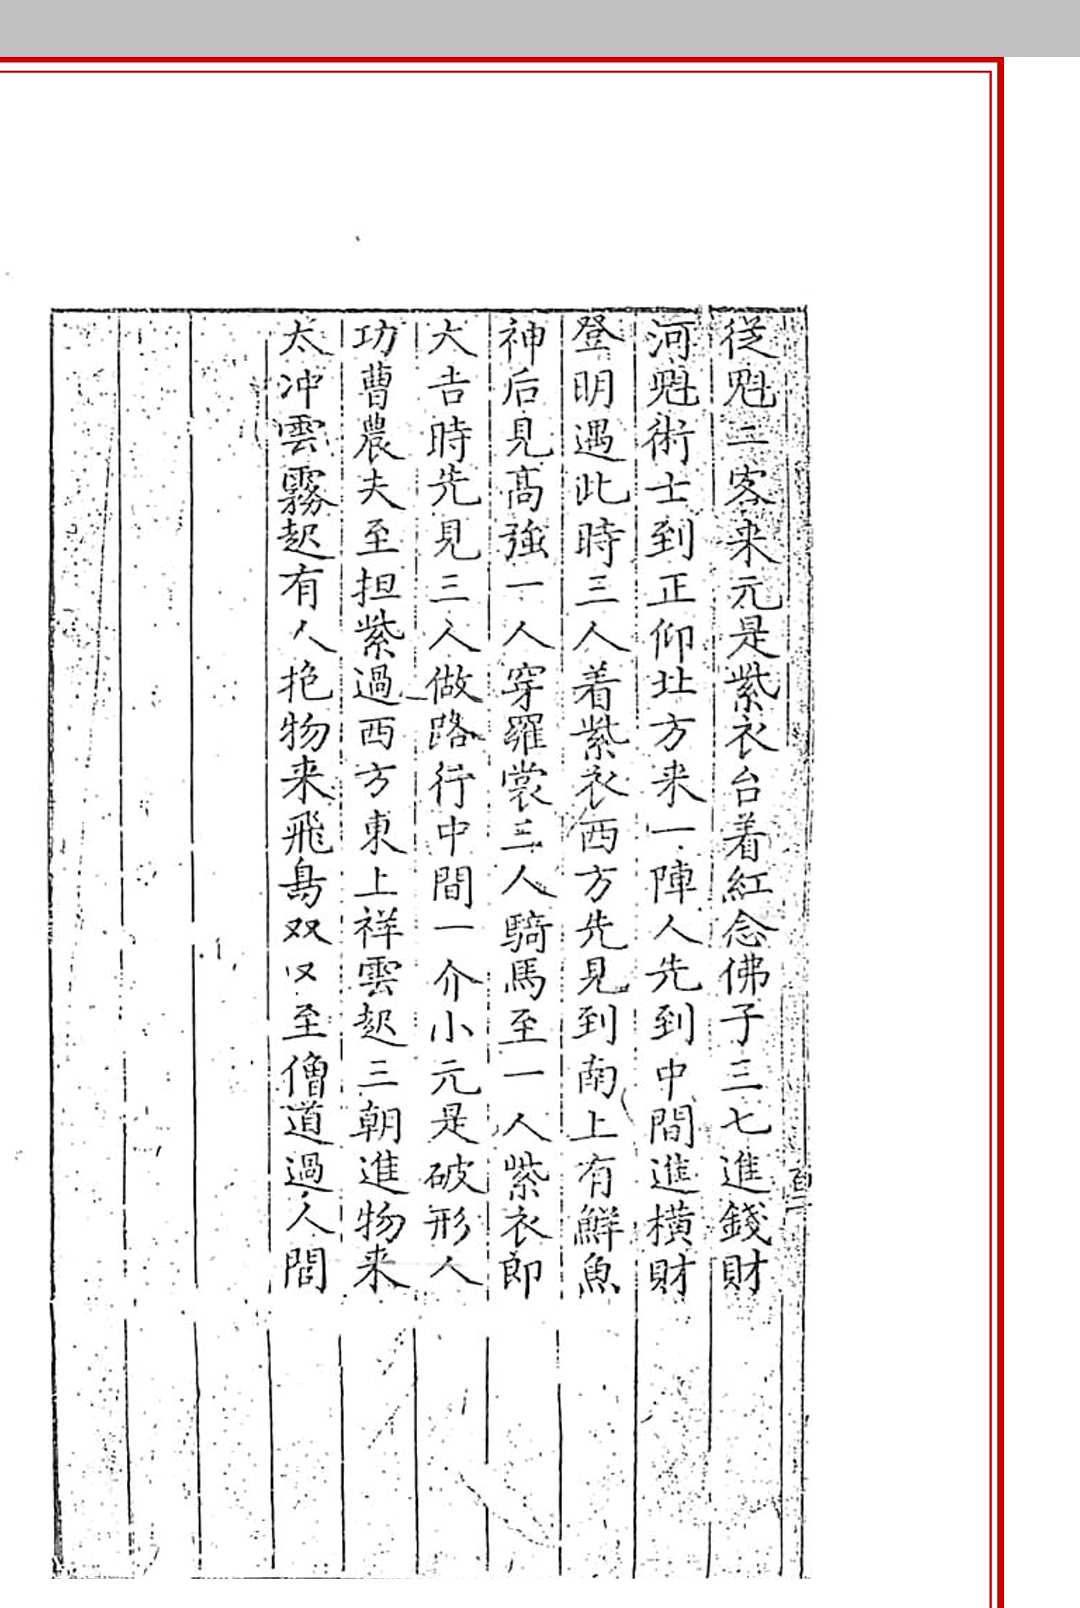 従魁二客来元是紫衣台着紅念佛子三七進錢財
河魁術士到正仰北方来一陣人先到中間進橫財
登明遇此時三人着紫衣西方先見到南上有鮮魚
神后見高強一人穿羅裳三人騎馬至一人紫衣郎
大吉時先見三人做路行中間一介小元是破形人
功曹農夫至担紫過西方東上祥雲起三朝進物来
太冲雲霧起有人抱物来飛鳥双又至僧道過人間